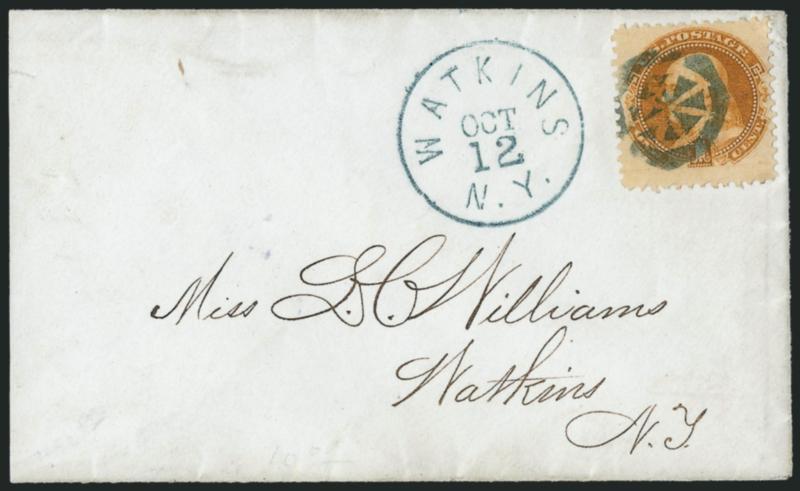 WATKINS
OCT
12
N.Y.
U.S. POSTAGE
CENT
Miss L. C. Williams
Watkins
N.Y.